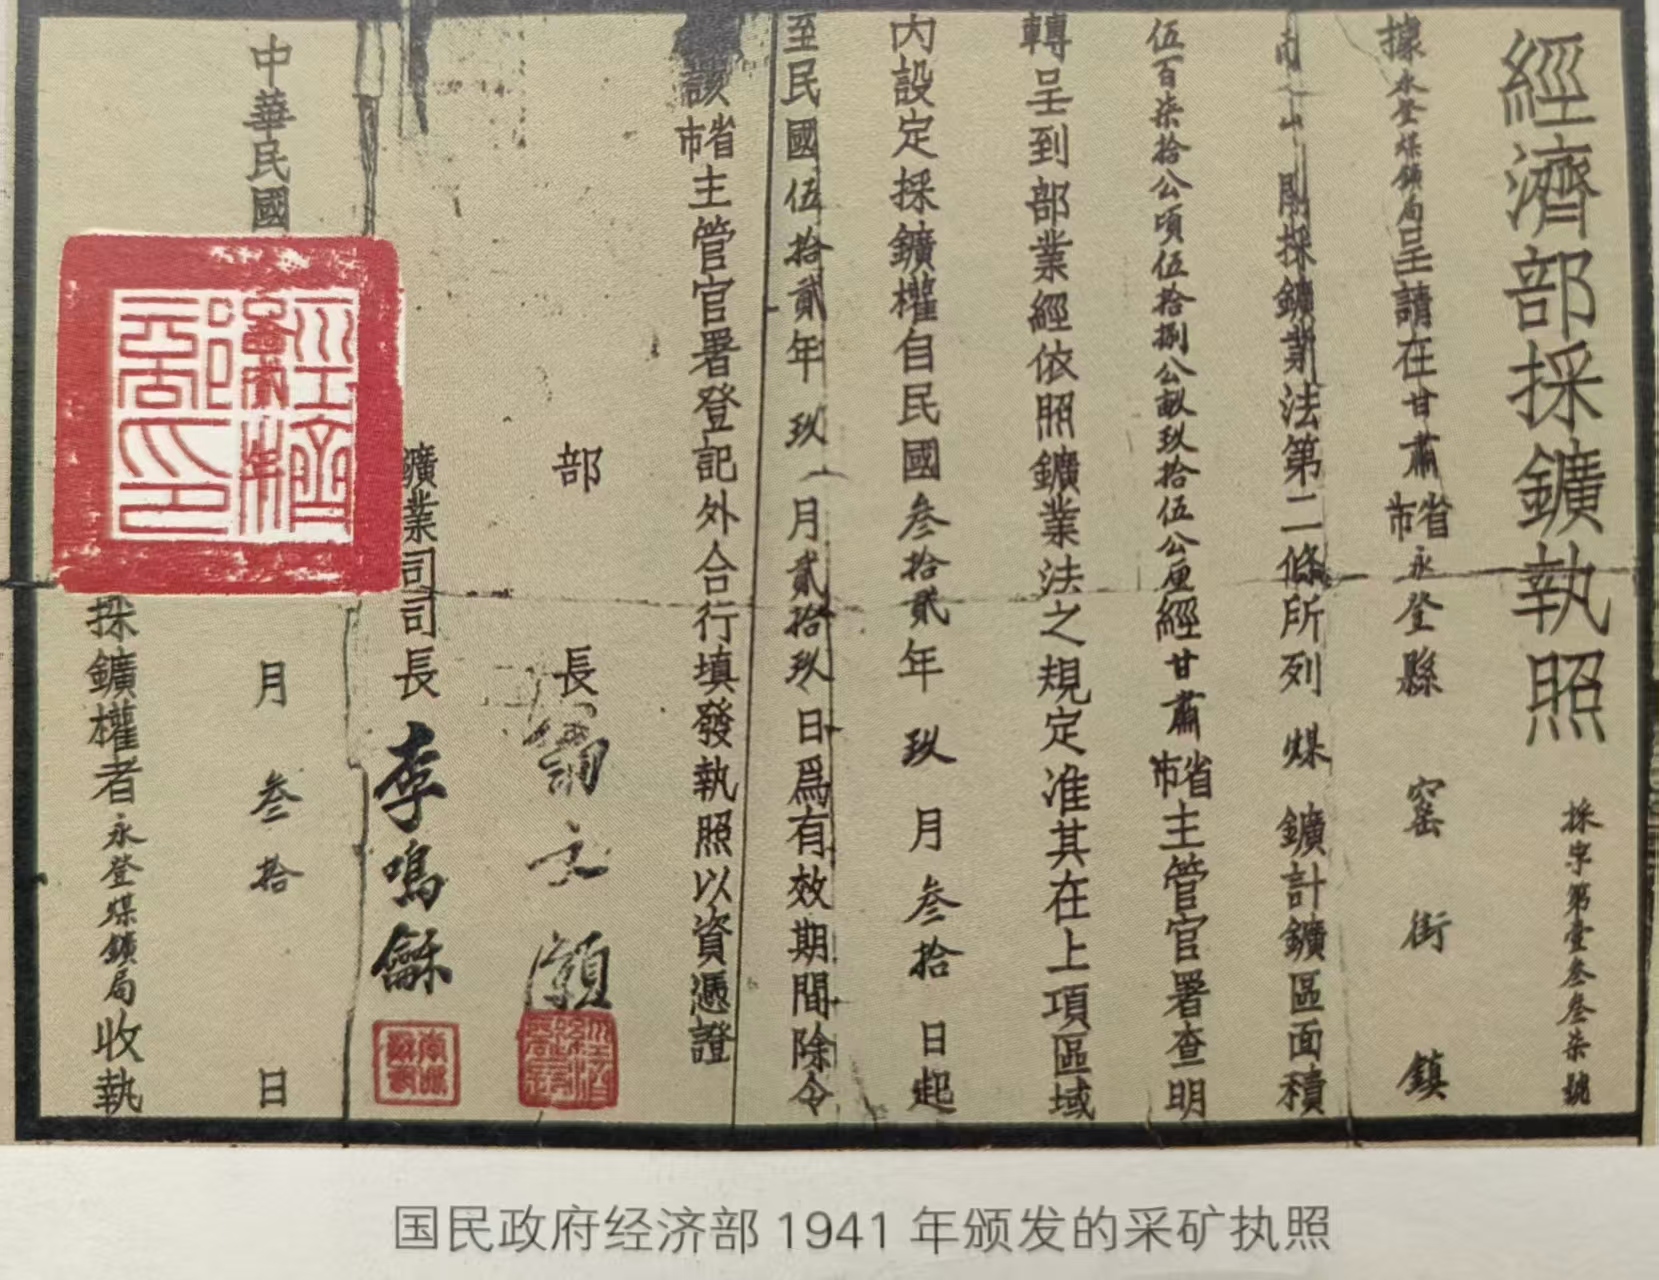 經濟部採鑛執照
採字第壹叁叁叁柒號
據永登煤鑛局呈請在甘肅省市永登縣窑街鎮
南山開採鑛業法第二條所列煤鑛計鑛區面積
伍百柒拾公頃伍拾捌公畝玖拾伍公厘經甘肅省市主管官署查明
轉呈到部業經依照鑛業法之規定准其在上項區域
內設定採鑛權自民國叁拾貳年玖月叁拾日起
至民國伍拾貳年玖月貳拾玖日爲有效期間除令
該省市主管官署登記外合行填發執照以資憑證
部長翁文灝
鑛業司司長李鳴龢
中華民國
月叁拾日
經濟部印
採鑛權者永登煤鑛局收執
国民政府经济部1941年颁发的采矿执照